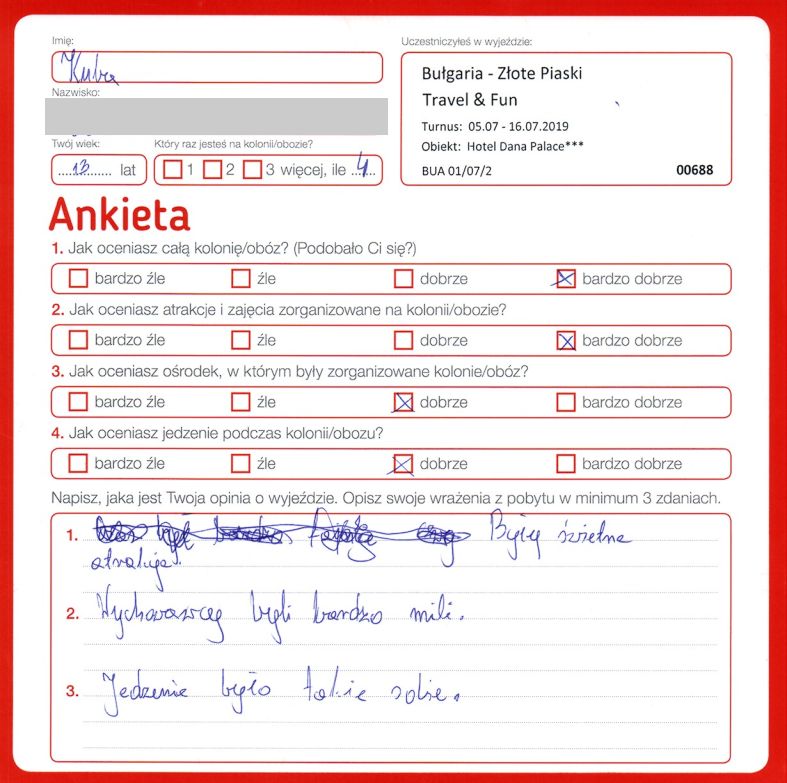 Imię:
Uczestniczyłeś w wyjeździe:
Kuba
Bułgaria - Złote Piaski
Travel & Fun
Nazwisko:
Turnus: 05.07 - 16.07.2019
Obiekt: Hotel Dana Palace***
BUA 01/07/2 00688
Twój wiek:
Który raz jesteś na kolonii/obozie?
13 lat
1 2 3 więcej, ile 4
Ankieta
1. Jak oceniasz całą kolonię/obóz? (Podobało Ci się?)
bardzo źle źle dobrze bardzo dobrze
2. Jak oceniasz atrakcje i zajęcia zorganizowane na kolonii/obozie?
bardzo źle źle dobrze bardzo dobrze
3. Jak oceniasz ośrodek, w którym były zorganizowane kolonie/obóz?
bardzo źle źle dobrze bardzo dobrze
4. Jak oceniasz jedzenie podczas kolonii/obozu?
bardzo źle źle dobrze bardzo dobrze
Napisz, jaka jest Twoja opinia o wyjeździe. Opisz swoje wrażenia z pobytu w minimum 3 zdaniach.
1. Były świetne
atrakcje.
2. Wychowawcy byli bardzo mili.
3. Jedzenie było takie sobie.